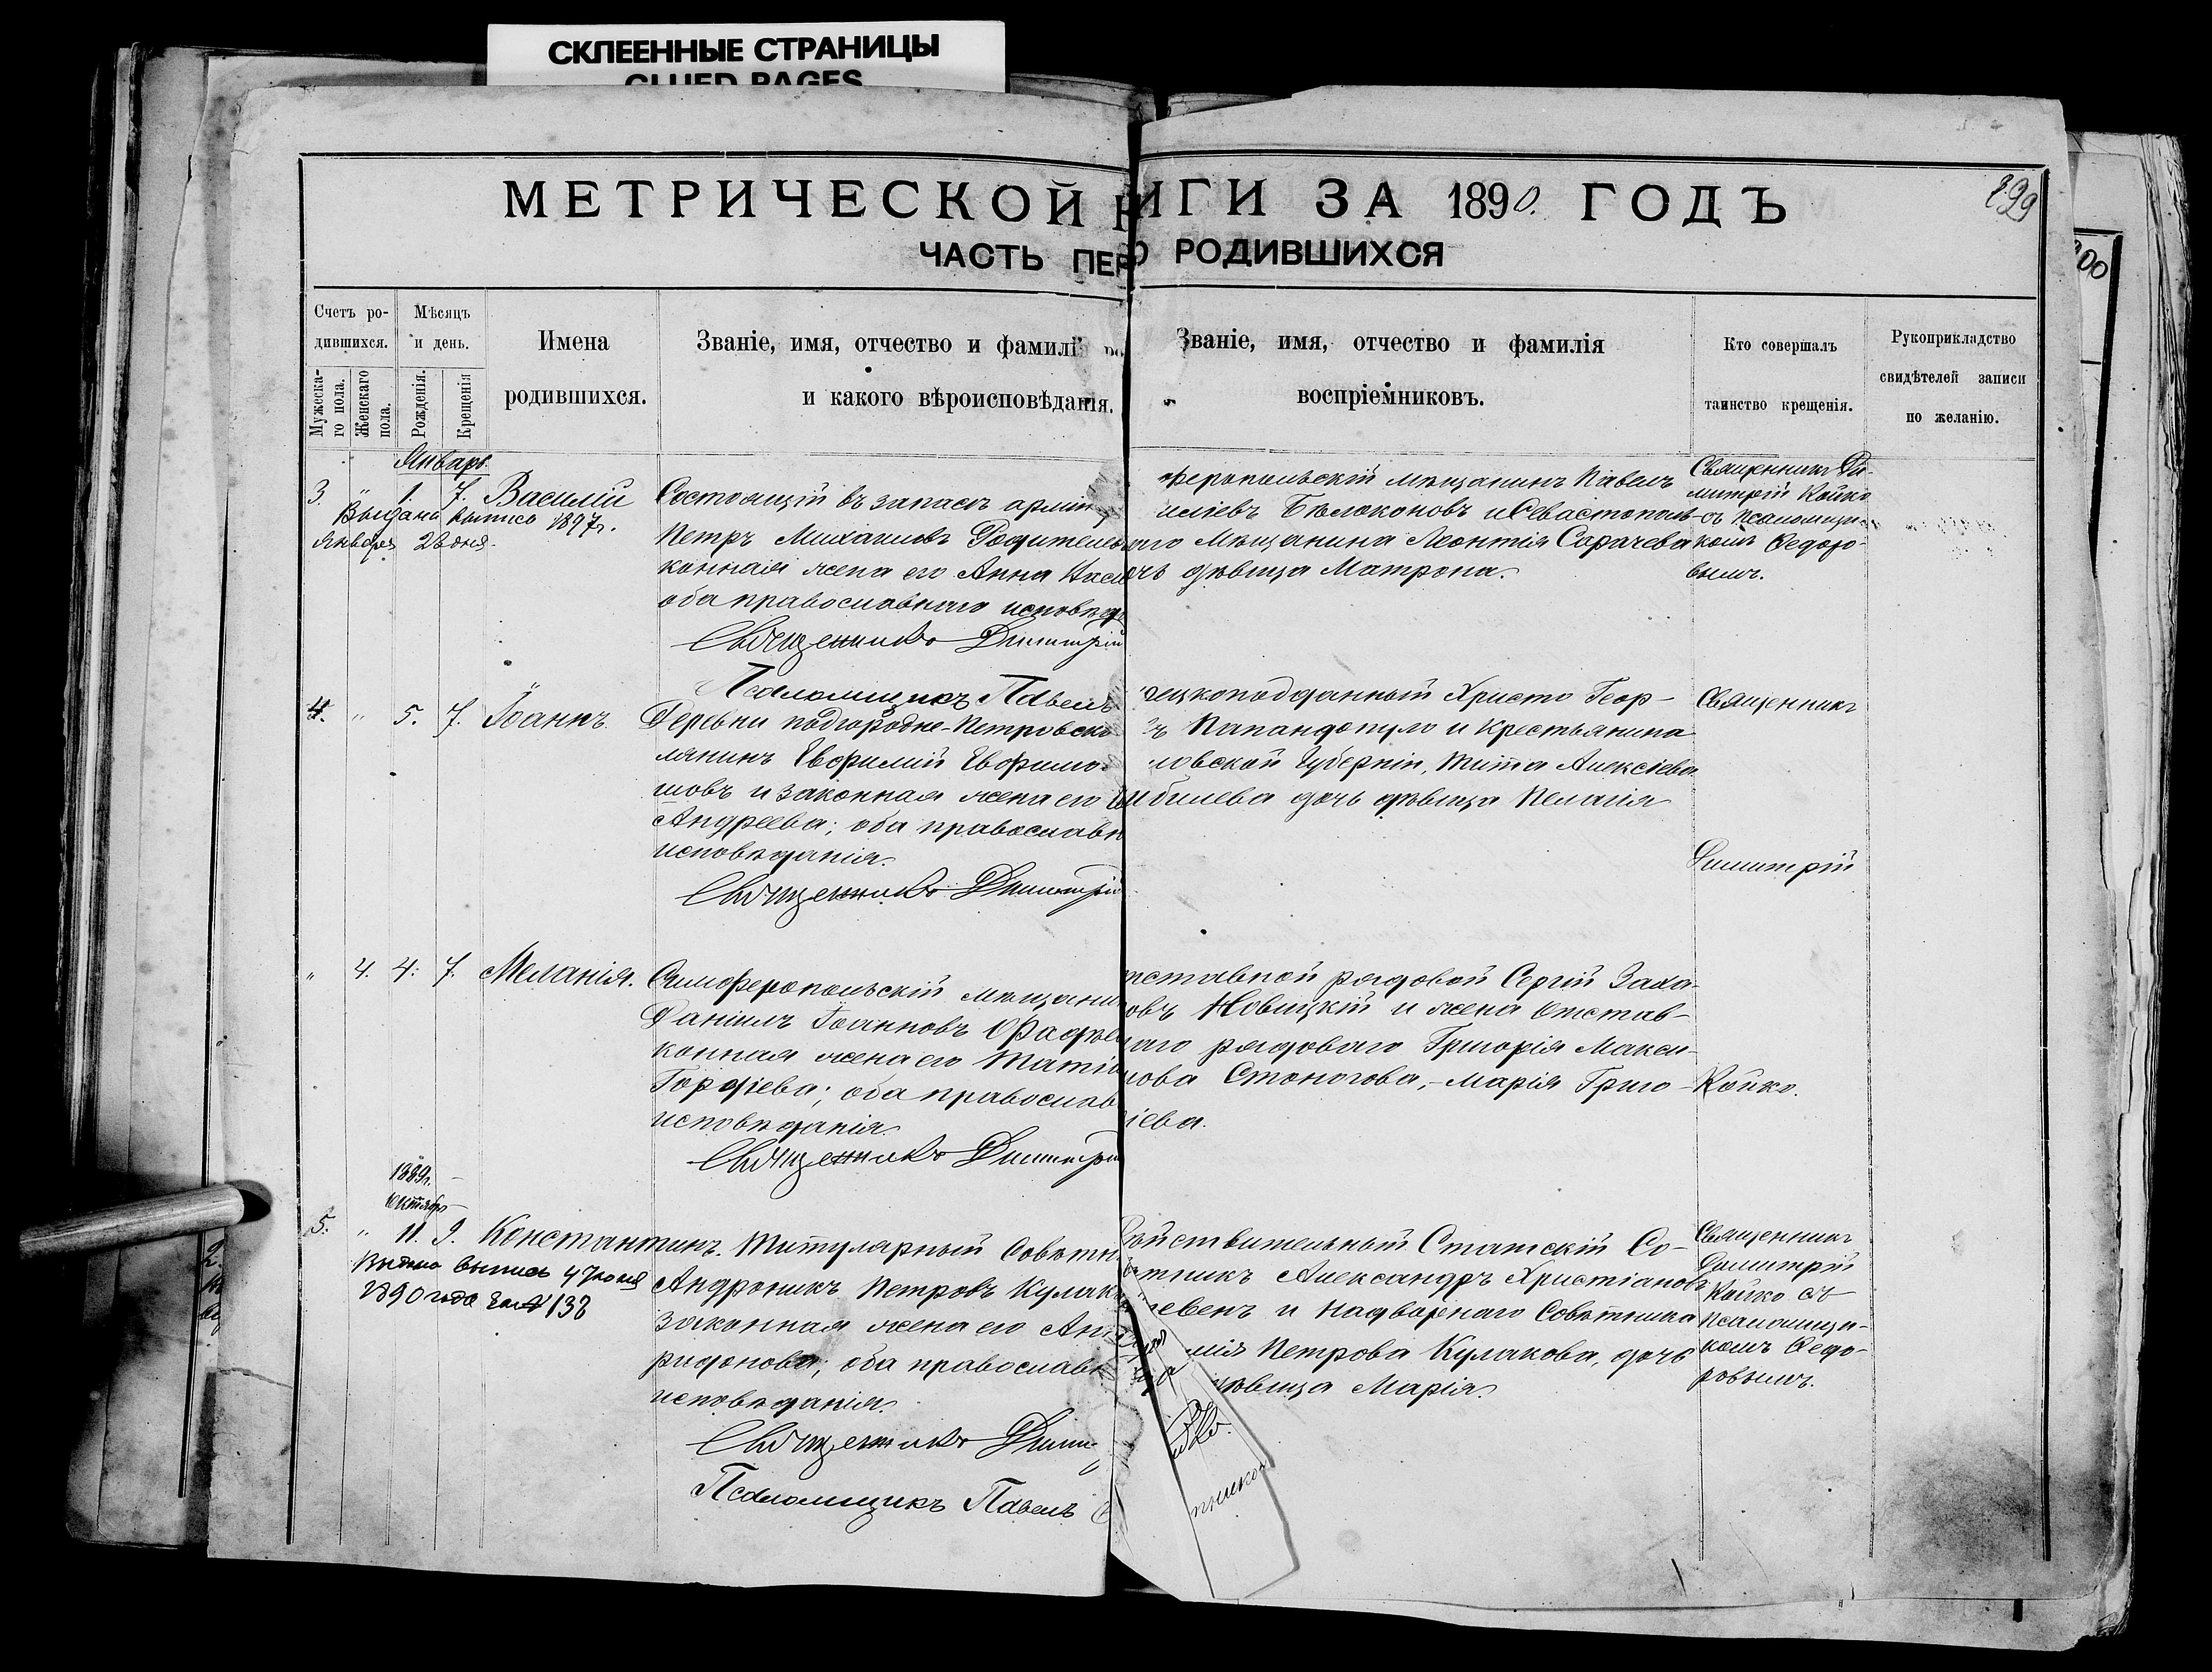 СКЛЕЕННЫЕ СТРАНИЦЫ
GLUED PAGES
МЕТРИЧЕСКОЙ
ИГИ ЗА 1890. ГОДЪ
899
ЧАСТЬ ПЕР
О РОДИВШИХСЯ
Счетъ ро-
дившихся.
Мужеска-
го пола.
Женскаго
пола.
Мѣсяцъ
и день.
Рожденія.
Крещенія
Имена
родившихся.
Званіе, имя, отчество и фамилі
и какого вѣроисповѣданія.
Званіе, имя, отчество и фамилія
воспріемниковъ.
Кто совершалъ
таинство крещенія.
Рукоприкладство
свидѣтелей записи
по желанію.
Январь
3. " 1. 7. Василій
Выдана выпись 1897 г.
Января 28 дня.
Состоящій въ запасѣ арміи
Петръ Михаиловъ
конная жена его Анна
оба православнаго исповѣд
Священникъ Димитрій
Псаломщикъ Павелъ
феропольскій мѣщанинъ Павелъ
иліевъ Бѣлоконовъ и Севастополь-
аго мѣщанина Леонтія Сорачева
дѣвица Матрона.
Священникъ Ди-
митрій Койко
съ псаломщи-
комъ Федоро-
вымъ.
4. " 5. 7. Іоаннъ.
Деревни подгородне-Петровско
лянинъ Евфимій Евфимо
шовъ и законная жена его
Андреева; оба православн
исповѣданія.
Священникъ Димитрій
рецкоподданный Христо Геор-
Папандопуло и крестьянина
ловской Губерніи, Тита Алексіева
билева дочь дѣвица Пелагія
Священникъ
Димитрій
" 4. 4. 7. Меланія.
Симферопольскій мѣщани
Даніилъ Іоанновъ
конная жена его Тати
Гордіева; оба православ
исповѣданія.
Священникъ Димитрій
тставной рядовой Сергій Заха-
овъ Новицкій и жена отстав-
наго рядоваго Григорія Макси-
мова Стоногова, - Марія Григо-
ріева.
Койко.
1889 г.
Октябрь
5. " 11. 9. Константинъ.
Выдана выпись 4 Іюня
1890 года за № 138
Титулярный Совѣтн
Андроникъ Петровъ Кулак
законная жена его Ан
ридонова; оба православн
исповѣданія.
Священникъ Дими
Псаломщикъ Павелъ
Дѣйствительный Статскій Со-
вѣтникъ Александръ Христіановъ
евенъ и Надворнаго Совѣтника
Петрова Кулакова, дочь
дѣвица Марія.
Священникъ
Димитрій
Койко съ
псаломщи-
комъ Федо-
ровымъ.